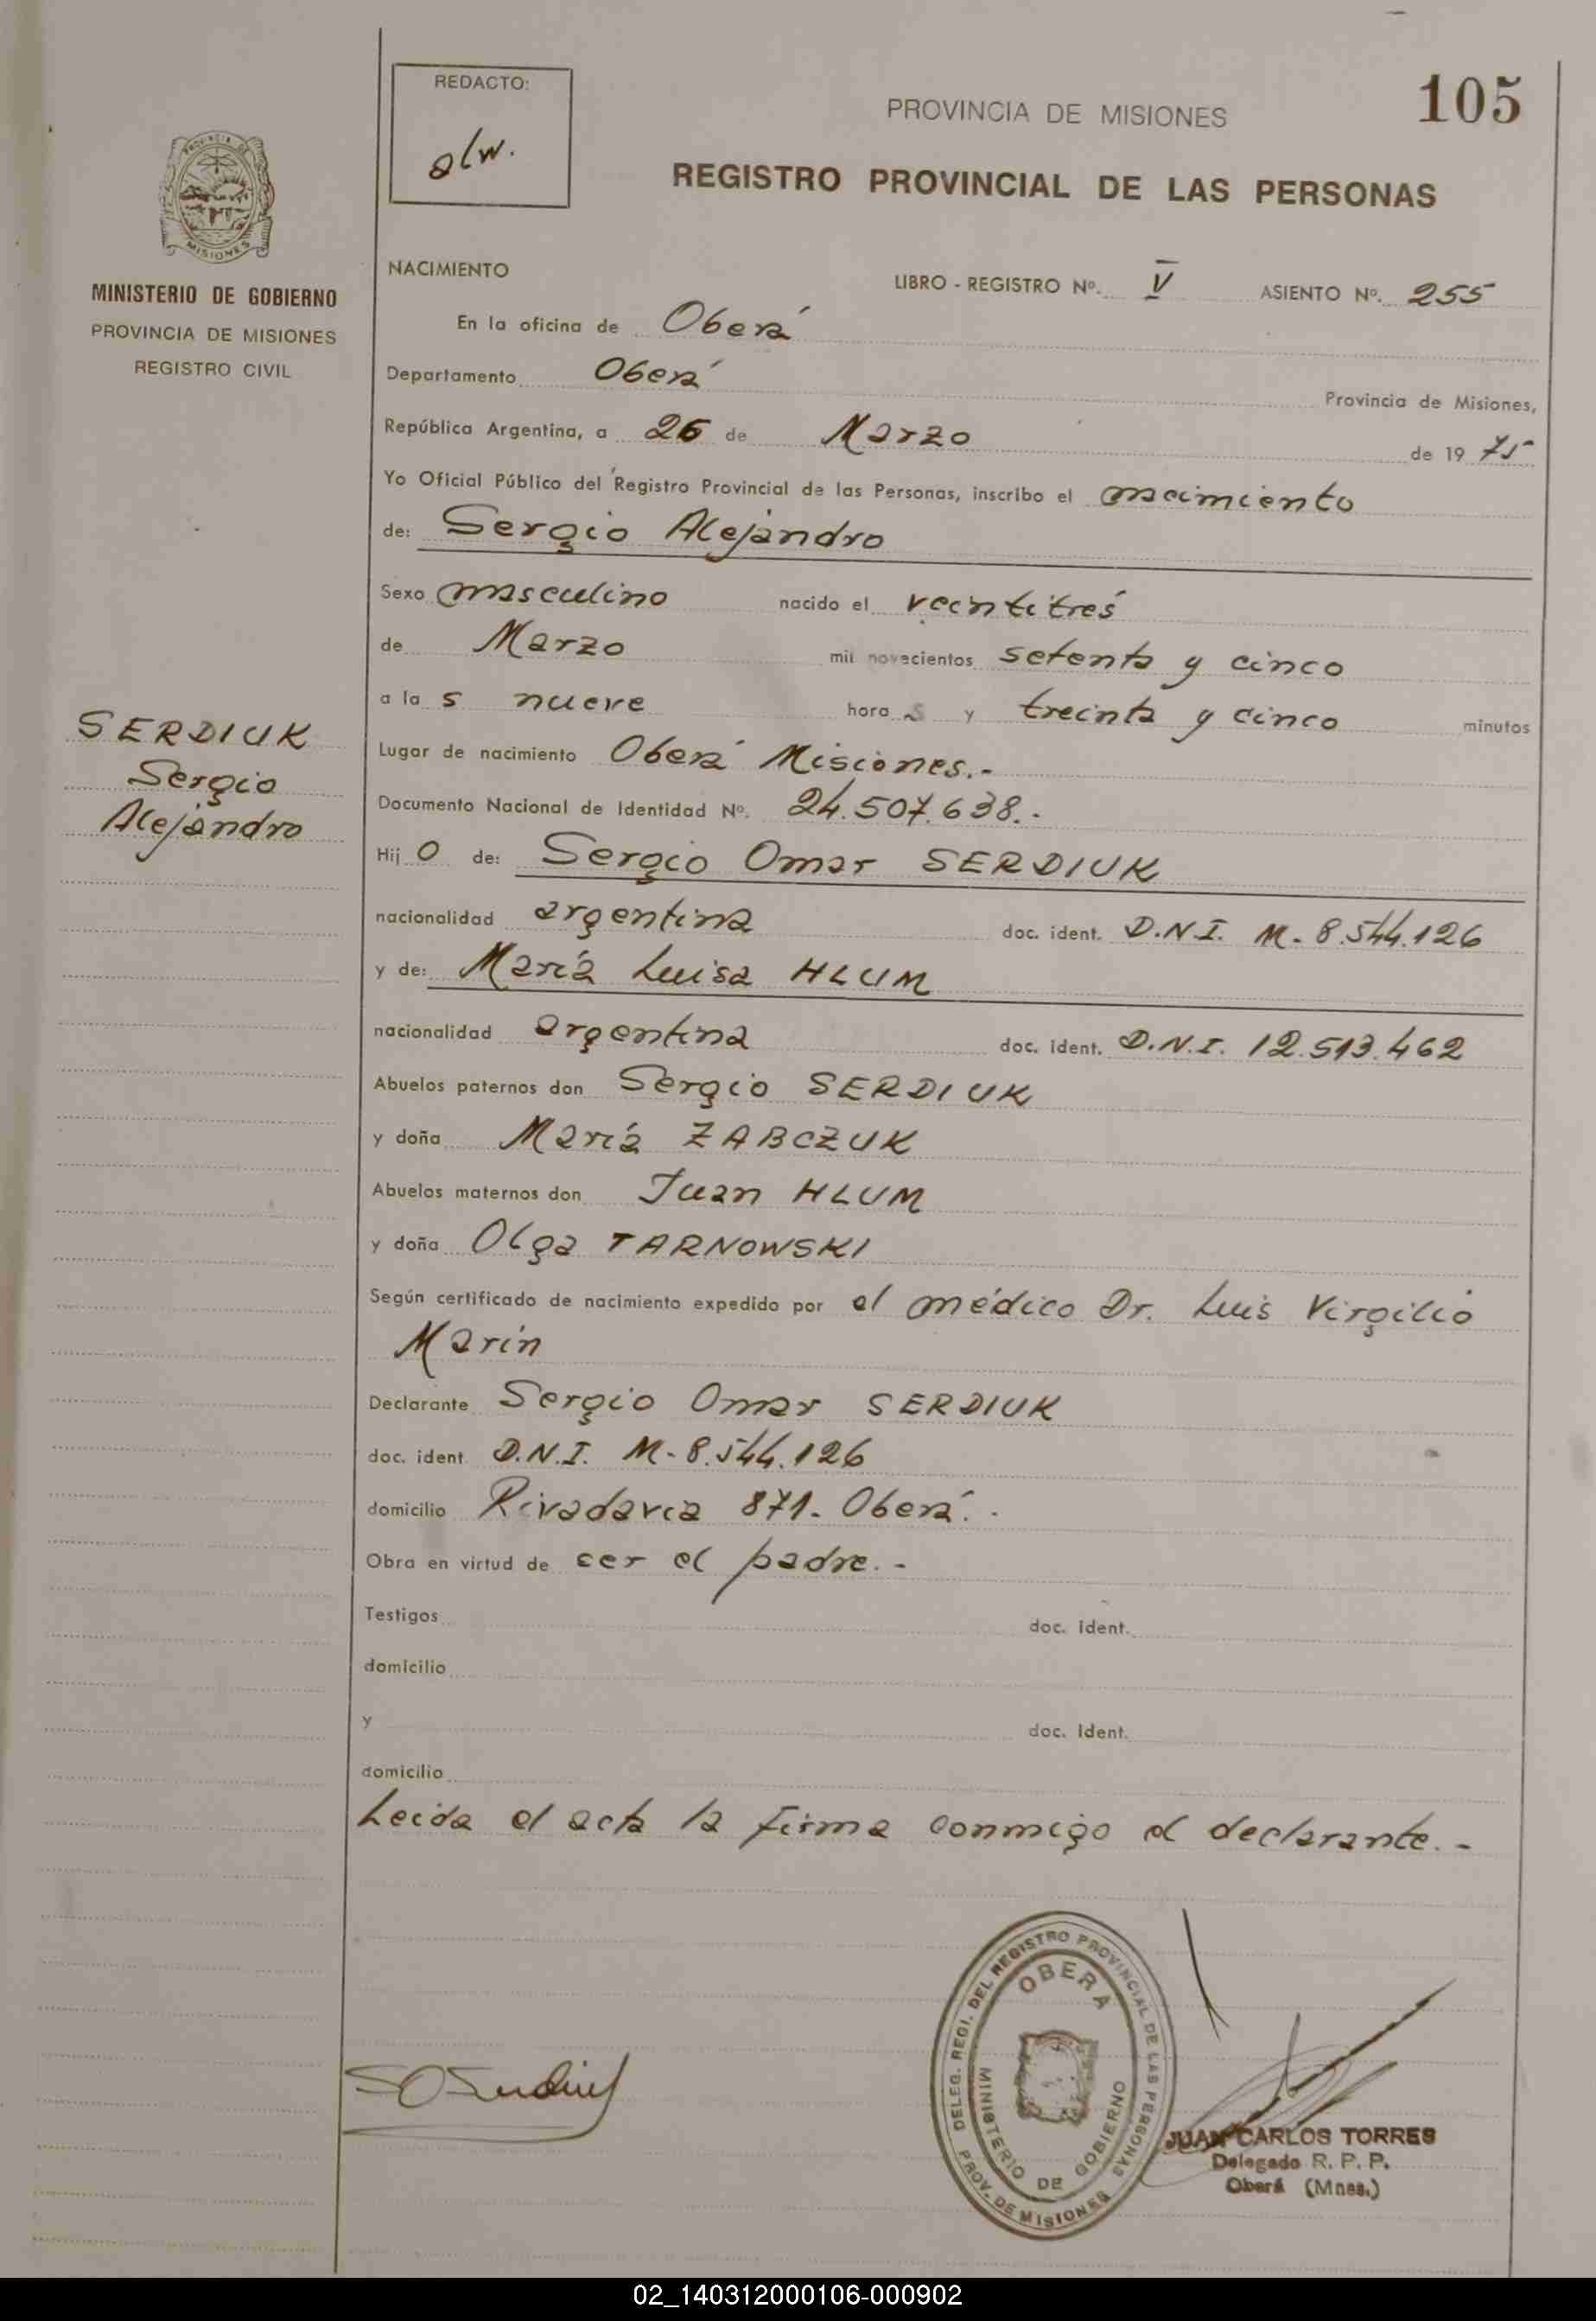 REDACTO:
alw.
PROVINCIA DE MISIONES
105
REGISTRO PROVINCIAL DE LAS PERSONAS
PROVINCIA DE
MISIONES
MINISTERIO DE GOBIERNO
PROVINCIA DE MISIONES
REGISTRO CIVIL
NACIMIENTO
LIBRO - REGISTRO Nº. V ASIENTO Nº. 255
En la oficina de Oberá
Departamento Oberá Provincia de Misiones,
República Argentina, a 26 de Marzo de 19 75
Yo Oficial Público del Registro Provincial de las Personas, inscribo el nacimiento
de: Sergio Alejandro
Sexo masculino nacido el veintitrés
de Marzo mil novecientos setenta y cinco
a la s nueve hora s y treinta y cinco minutos
SERDIUK
Sergio
Alejandro
Lugar de nacimiento Oberá Misiones.-
Documento Nacional de Identidad Nº. 24.507.638.-
Hij o de: Sergio Omar SERDIUK
nacionalidad argentina doc. ident. D.N.I. M- 8.544.126
y de: María Luisa HLUM
nacionalidad argentina doc. ident. D.N.I. 12.513.462
Abuelos paternos don Sergio SERDIUK
y doña María ZABCZUK
Abuelos maternos don Juan HLUM
y doña Olga TARNOWSKI
Según certificado de nacimiento expedido por el médico Dr. Luis Virgilio
Marín
Declarante Sergio Omar SERDIUK
doc. ident D.N.I. M-8.544.126
domicilio Rivadavia 871- Oberá.-
Obra en virtud de ser el padre.-
Testigos doc. ident.
domicilio
y doc. ident.
domicilio
Leída el acta la firma conmigo el declarante.-
SOSerdiuk
DELEG. REGI. DEL REGISTRO PROVINCIAL DE LAS PERSONAS
PROV. DE MISIONES
OBERA
MINISTERIO DE GOBIERNO
JUAN CARLOS TORRES
Delegado R. P. P.
Oberá (Mnes.)
02_140312000106-000902